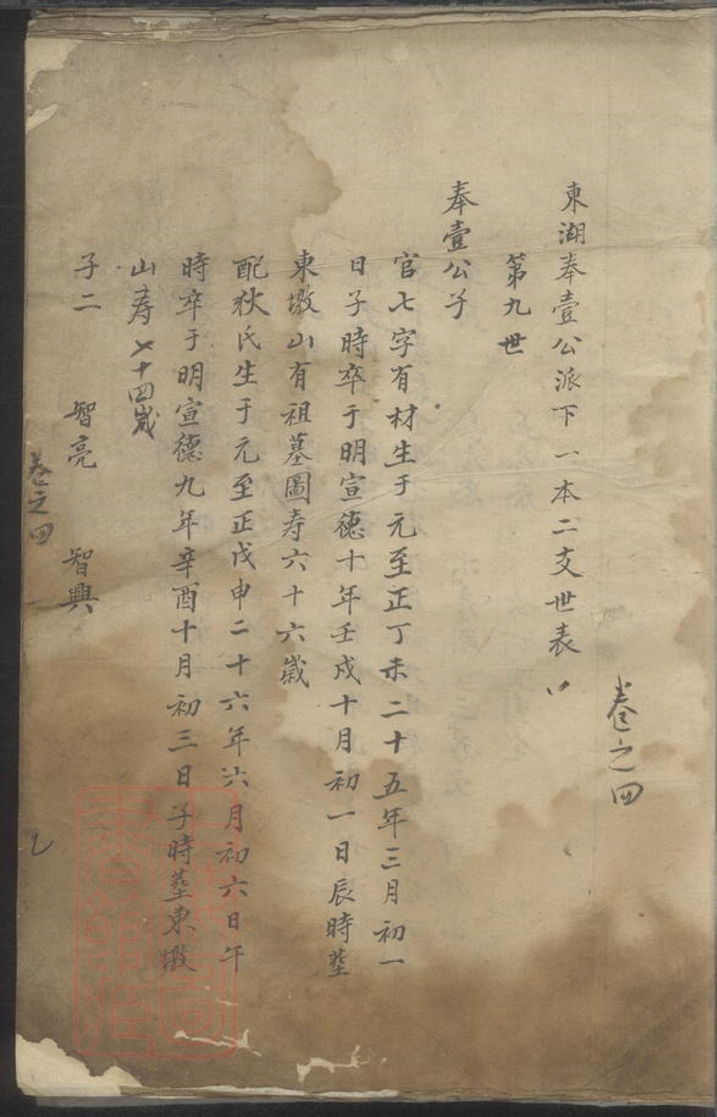 卷之四
東湖奉壹公派下一本二支世表
第九世
奉壹公子
官七字有材生于元至正丁未二十五年三月初一
日子時卒于明宣德十年壬戍十月初一日辰時塟
東墩山有祖墓圖寿六十六歲
配狄氏生于元至正戊申二十六年六月初六日午
時卒于明宣德九年辛酉十月初三日子時塟東墩
山寿七十四歲
子二 智亮 智興
卷之四